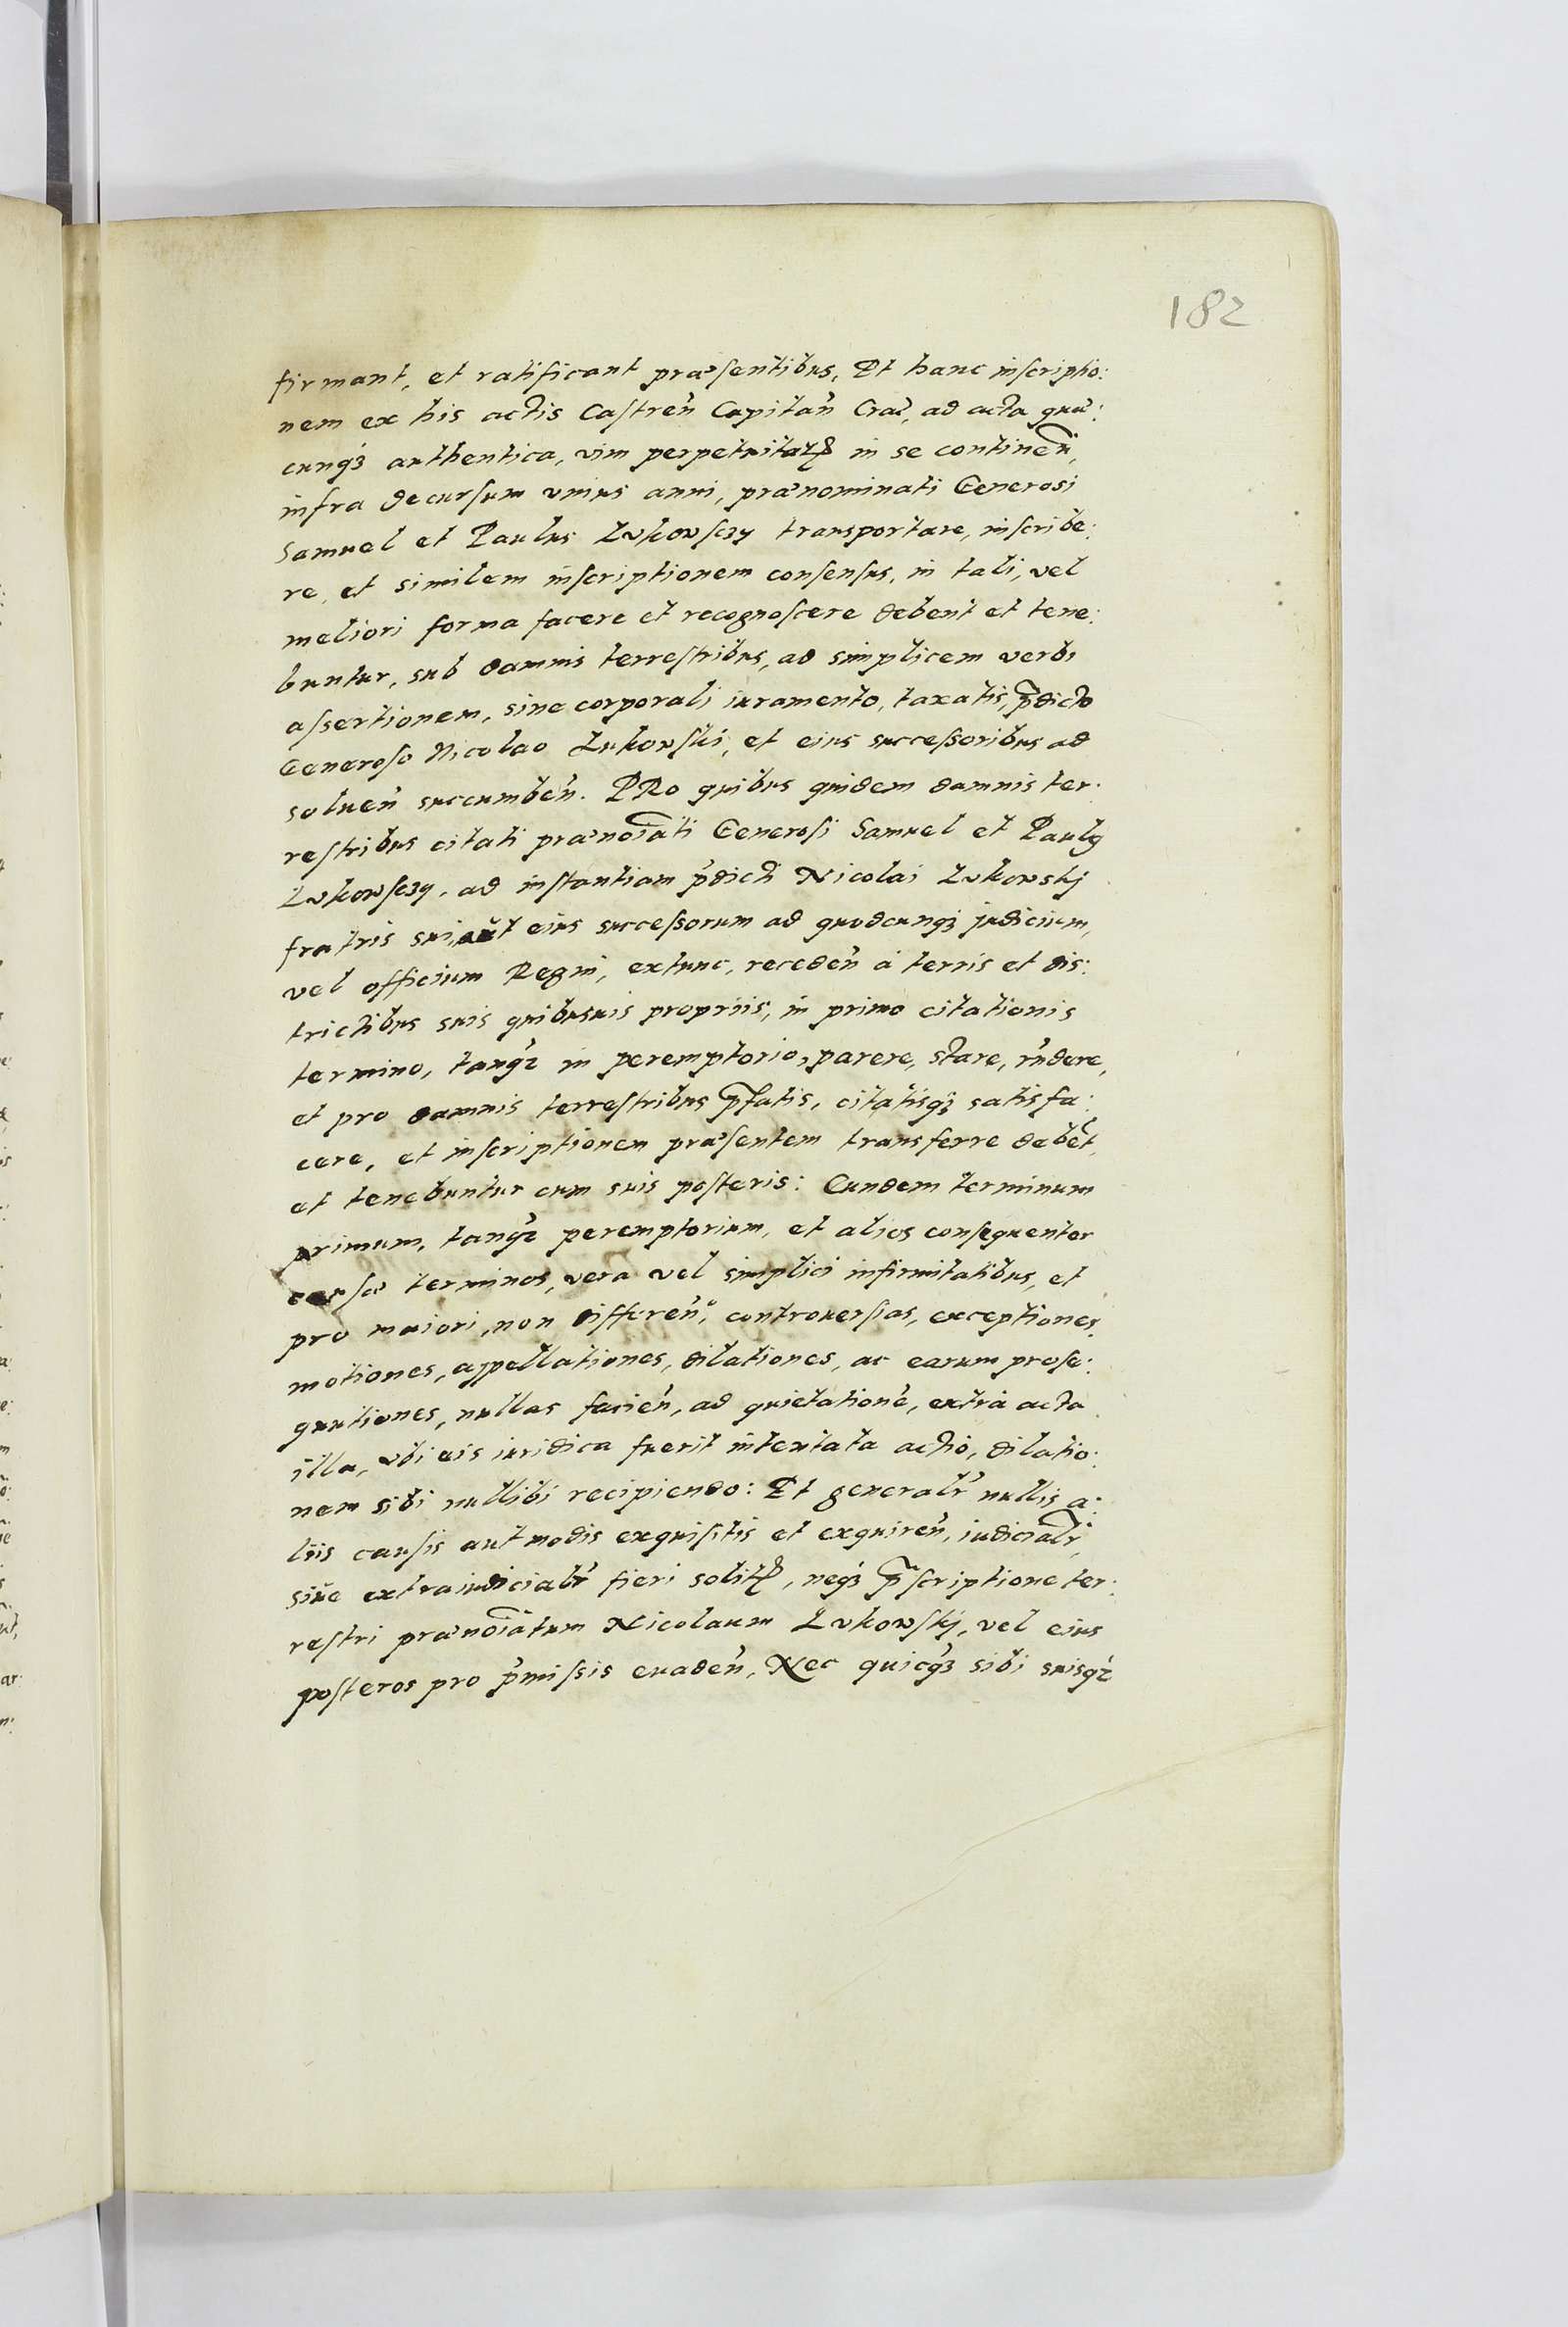 182
firmant, et ratificant præsentibus. Et hanc inscriptio:
nem ex his actis Castren̄ Capitan̄ Crac̄, ad acta quæ:
cunqꝫ authentica, vim perpetuitatꝭ in se continen̄,
infra decursum unius anni, prænominati Generosi
Samuel et Paulus Lukowsczy transportare, inscribe:
re, et similem inscriptionem consensus, in tali, vel
meliori forma facere et recognoscere debent et tene:
buntur, sub damnis terrestribus, ad simplicem verbi
assertionem, sine corporali iuramento, taxatis, p̄dicto
Generoso Nicolao Lukowski, et eius successoribus ad
soluen̄ succumben̄. PRo quibus quidem damnis ter:
restribus citati prænoīati Generosi Samuel et Paulꝰ
Lukowsczy, ad instantiam p̄dicti Nicolai Lukowskj
fratris sui, aut eius successorum ad quodcunqꝫ judicium,
vel officium Regni, extunc, receden̄ à terris et dis:
trictibus suis quibusuis propriis, in primo citationis
termino, tanqꝫ in peremptorio, parere, stare, rn̄dere,
et pro damnis terrestribus p̄fatis, citatisqꝫ satisfa:
cere, et inscriptionem præsentem transferre debēt,
et tenebuntur cum suis posteris: Eundem terminum
primum, tanqꝫ peremptorium, et alios consequenter
terminos, vera vel simplici infirmitatibus, et
pro maiori, non differen̄, controuersias, exceptiones,
motiones, appellationes, dilationes, ac earum prose:
quutiones, nullas facien̄, ad quietationē, extrà acta
illa, ubi eis iuridica fuerit intentata actio, dilatio:
nem sibi nullibi recipiendo: Et generalr̄ nullis a:
liis causis aut modis exquisitis et exquiren̄, iudicialr̄,
siue extraiudicialr̄ fieri solitꝭ, neqꝫ p̄scriptione ter:
restri prænoīatum Nicolaum Lukowskj, vel eius
posteros pro p̄missis euaden̄, Nec quicqꝫ sibi suisqꝫ